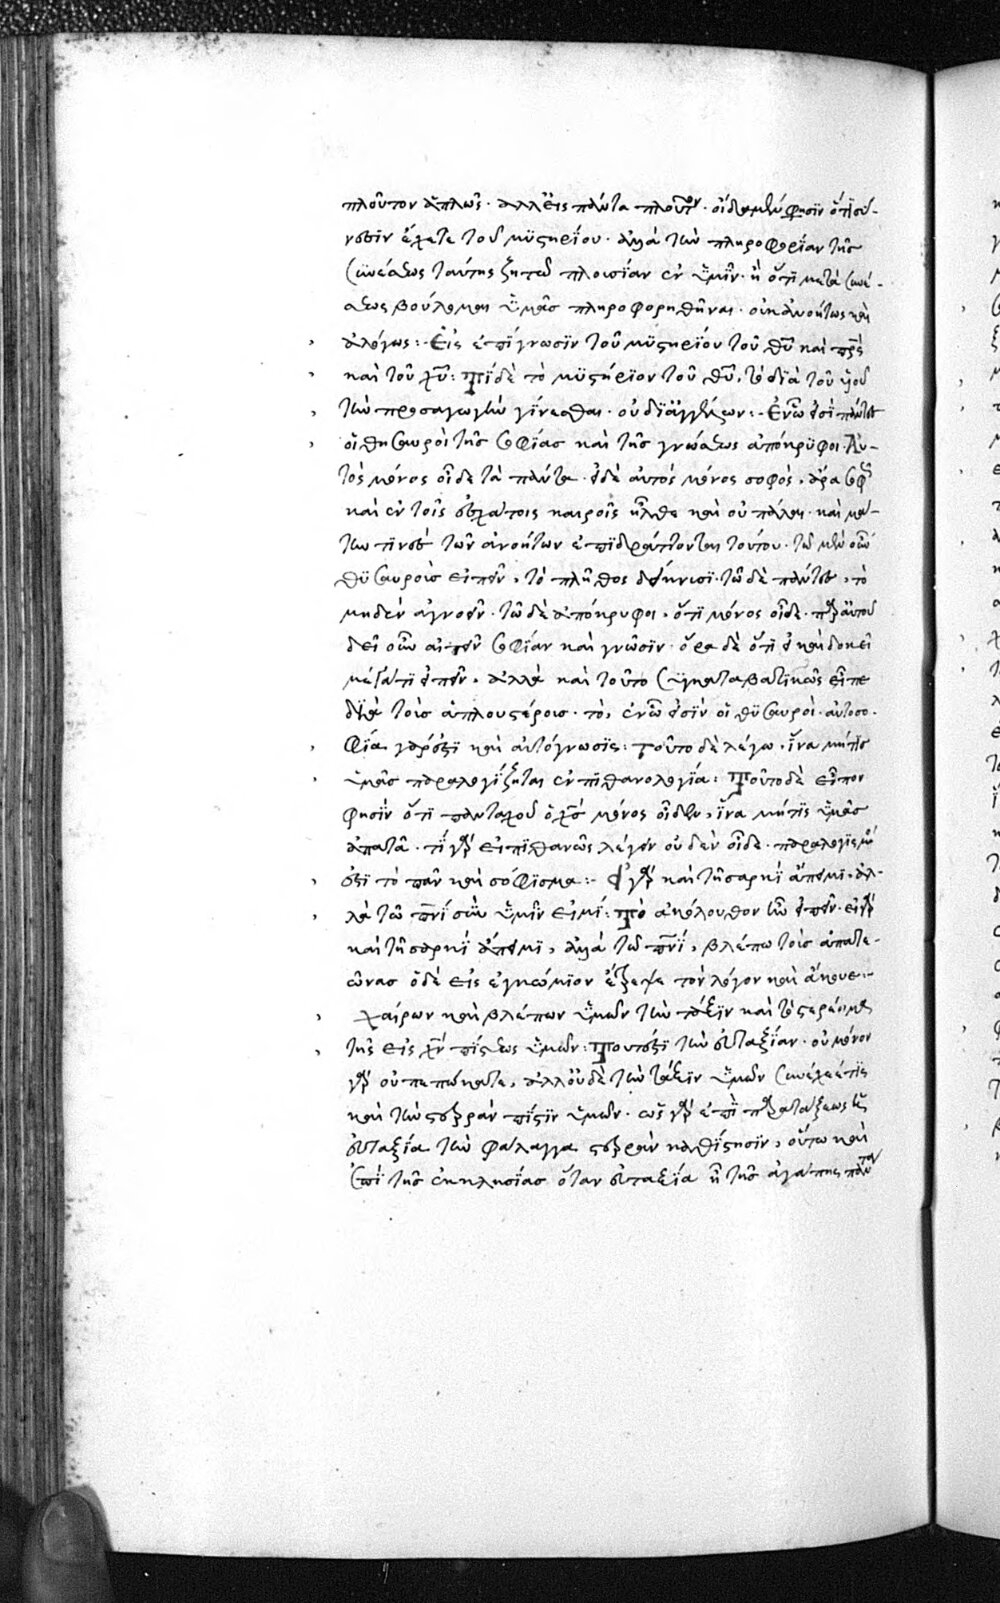 πλοῦτον ἁπλῶς· ἀλλ' εἰς πάντα πλοῦτον· οἶδα μὲν φησὶν ὅτι σύ-
νεσιν ἔχετε τοῦ μυστηρίου· ἀλλὰ τὴν πληροφορίαν τῆς
συνέσεως ταύτης ζητῶ πλουσίαν ἐν ὑμῖν· ἢ ὅτι μετὰ συνέ-
σεως βούλομαι ὑμᾶς πληροφορηθῆναι· οὐκ ἀνοήτως καὶ
ἀλόγως:· Εἰς ἐπίγνωσιν τοῦ μυστηρίου τοῦ θυ καὶ πρς
καὶ τοῦ χυ: Τί δὲ τὸ μυστήριον τοῦ θυ, τὸ διὰ τοῦ υἱοῦ
τὴν προσαγωγὴν γίνεσθαι· οὐ δι' ἀγγέλων:· Ἐν ᾧ εἰσὶ πάντες
οἱ θησαυροὶ τῆς σοφίας καὶ τῆς γνώσεως ἀπόκρυφοι· Αὐ-
τὸς μόνος οἶδε τὰ πάντα· εἰ δὲ αὐτὸς μόνος σοφὸς, ἄρα σοφῶς
καὶ ἐν τοῖς ἐσχάτοις καιροῖς ἦλθε καὶ οὐ πάλαι· καὶ μά-
την τινὲς τῶν ἀνοήτων ἐπιδράττονται τούτου· τῶ μὲν οὖν
θυσαυροὺς εἰπεῖν, τὸ πλῆθος δείκνυσι· τῶ δὲ πάντες, τὸ
μηδὲν ἀγνοεῖν· τῶ δὲ ἀπόκρυφοι, ὅτι μόνος οἶδε· παρ' αὐτοῦ
δεῖ οὖν αἰτεῖν σοφίαν καὶ γνῶσιν· ὅρα δὲ ὅτι εἰ καὶ δοκεῖ
μέγα τι εἰπεῖν, ἀλλὰ καὶ τοῦτο συγκαταβατικῶς εἶπε
διὰ τοὺς ἁπλουστέρους· τὸ, ἐν ᾧ εἰσὶν οἱ θυσαυροὶ· αὐτοσο-
φία γάρ ἐστι καὶ αὐτόγνωσις: τοῦτο δὲ λέγω, ἵνα μή τις
ὑμᾶς παραλογίζηται ἐν πιθανολογία: Τοῦτο δὲ εἶπον
φησὶν ὅτι πανταχοῦ ὁ χς μόνος οἶδεν, ἵνα μή τις ὑμᾶς
ἀπατᾶ· τί γὰρ εἰ πιθανῶς λέγειν οὐδὲν οἶδε· παραλογισμοῦ
ἐστὶ τὸ πᾶν καὶ σόφισμα:· Εἰ γὰρ καὶ τῆ σαρκὶ ἄπειμι· ἀλ-
λὰ τῶ πνι σὺν ὑμῖν εἰμί: Τὸ ἀκόλουθον ἦν εἰπεῖν· εἰ γὰρ
καὶ τῆ σαρκὶ ἄπειμι, ἀλλὰ τῶ πνι, βλέπω τοὺς ἀπατε-
ῶνας ὁ δὲ εἰς ἐγκώμιον ἔτρεψε τὸν λόγον καὶ ἄκουε:·
χαίρων καὶ βλέπων ὑμῶν τὴν τάξιν καὶ τὸ στερέωμα
τῆς εἰς χν πίστεως ὑμῶν: Τουτέστι τὴν εὐταξίαν· οὐ μόνον
γὰρ οὐ πεπτώκατε, ἀλλ' οὐδὲ τὴν τάξιν ὑμῶν συνέχεέ τις
καὶ τὴν στερρὰν πίστιν ὑμῶν· ὡς γὰρ ἐπὶ παρατάξεως ἡ
εὐταξία τὴν φάλαγγα στερρὰν καθίστησιν, οὕτω καὶ
ἐπὶ τῆς ἐκκλησίας ὅταν εὐταξία ᾖ τῆς ἀγάπης πάντα